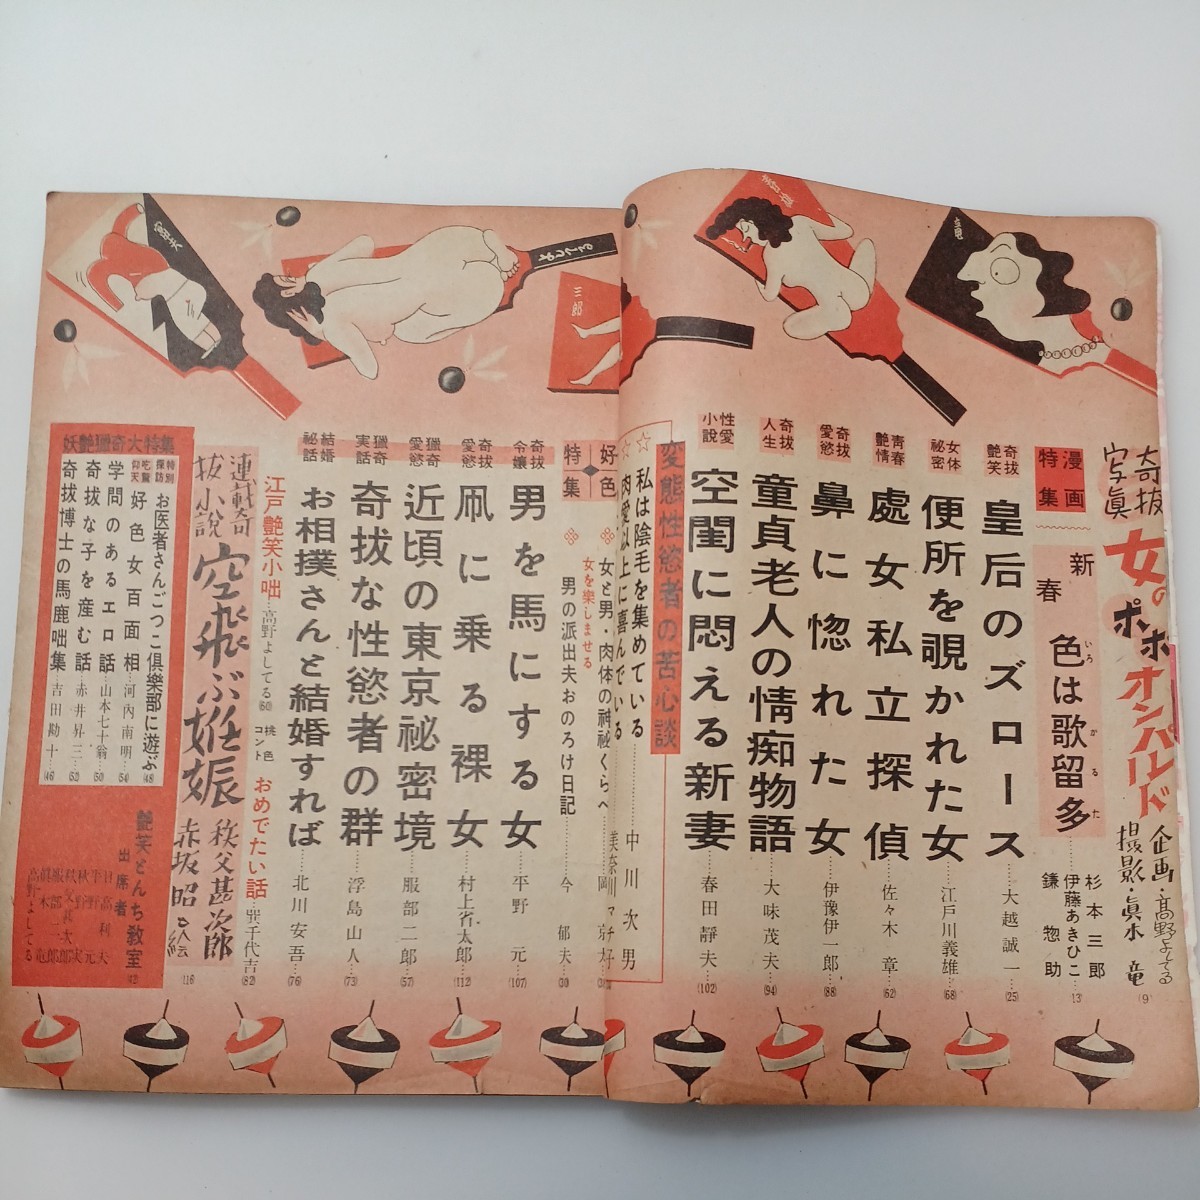 奇抜写眞 女のポーズオンパレード 企画・高野よしてる 撮影・眞木 竜 (9)
漫画特集 新春 色は歌留多 杉本三郎 伊藤あきひこ 鎌惣助 13
いろ かるた
奇抜艶笑 皇后のズロース 大越誠一 (25)
女体秘密 便所を覗かれた女 江戸川義雄 (68)
靑春艶情 處女私立探偵 佐々木章 (62)
奇抜愛慾 鼻に惚れた女 伊豫伊一郎 (88)
奇抜人生 童貞老人の情痴物語 大味茂夫 (94)
性愛小說 空閨に悶える新妻 春田靜夫 (102)
変態性慾者の苦心談
☆私は陰毛を集めている
☆肉愛以上に喜んでいる
中川次男
好色特集
女と男・肉体の神祕くらべ
女を樂しませる
男の派出夫おのろけ日記 今郁夫 (30)
奇抜令嬢 男を馬にする女 平野元 (107)
奇抜愛慾 凧に乗る裸女 村上省太郎 (112)
獵奇愛慾 近頃の東京秘密境 服部二郎 (57)
獵奇実話 奇抜な性慾者の群 浮島山人 (73)
結婚祕話 お相撲さんと結婚すれば 北川安吾 (76)
江戸艶笑小咄 高野よしてる (60)
桃色コント おめでたい話 巽千代吉 (82)
連載奇抜小説 空飛ぶ姙娠 秩父甚次郎 赤坂昭え絵 (16)
妖艶獵奇大特集
特別探訪 お医者さんごつこ倶樂部に遊ぶ (48)
吃驚仰天 好色女百面相 河內南明 (54)
学問のあるエロ話 山本七十翁 (50)
奇抜な子を産む話 赤井昇三 (52)
奇抜博士の馬鹿咄集 吉田勘十 (46)
艶笑とんち教室 (42)
出席者
日高利夫
平野元
高野よしてる
三郎
よしてる